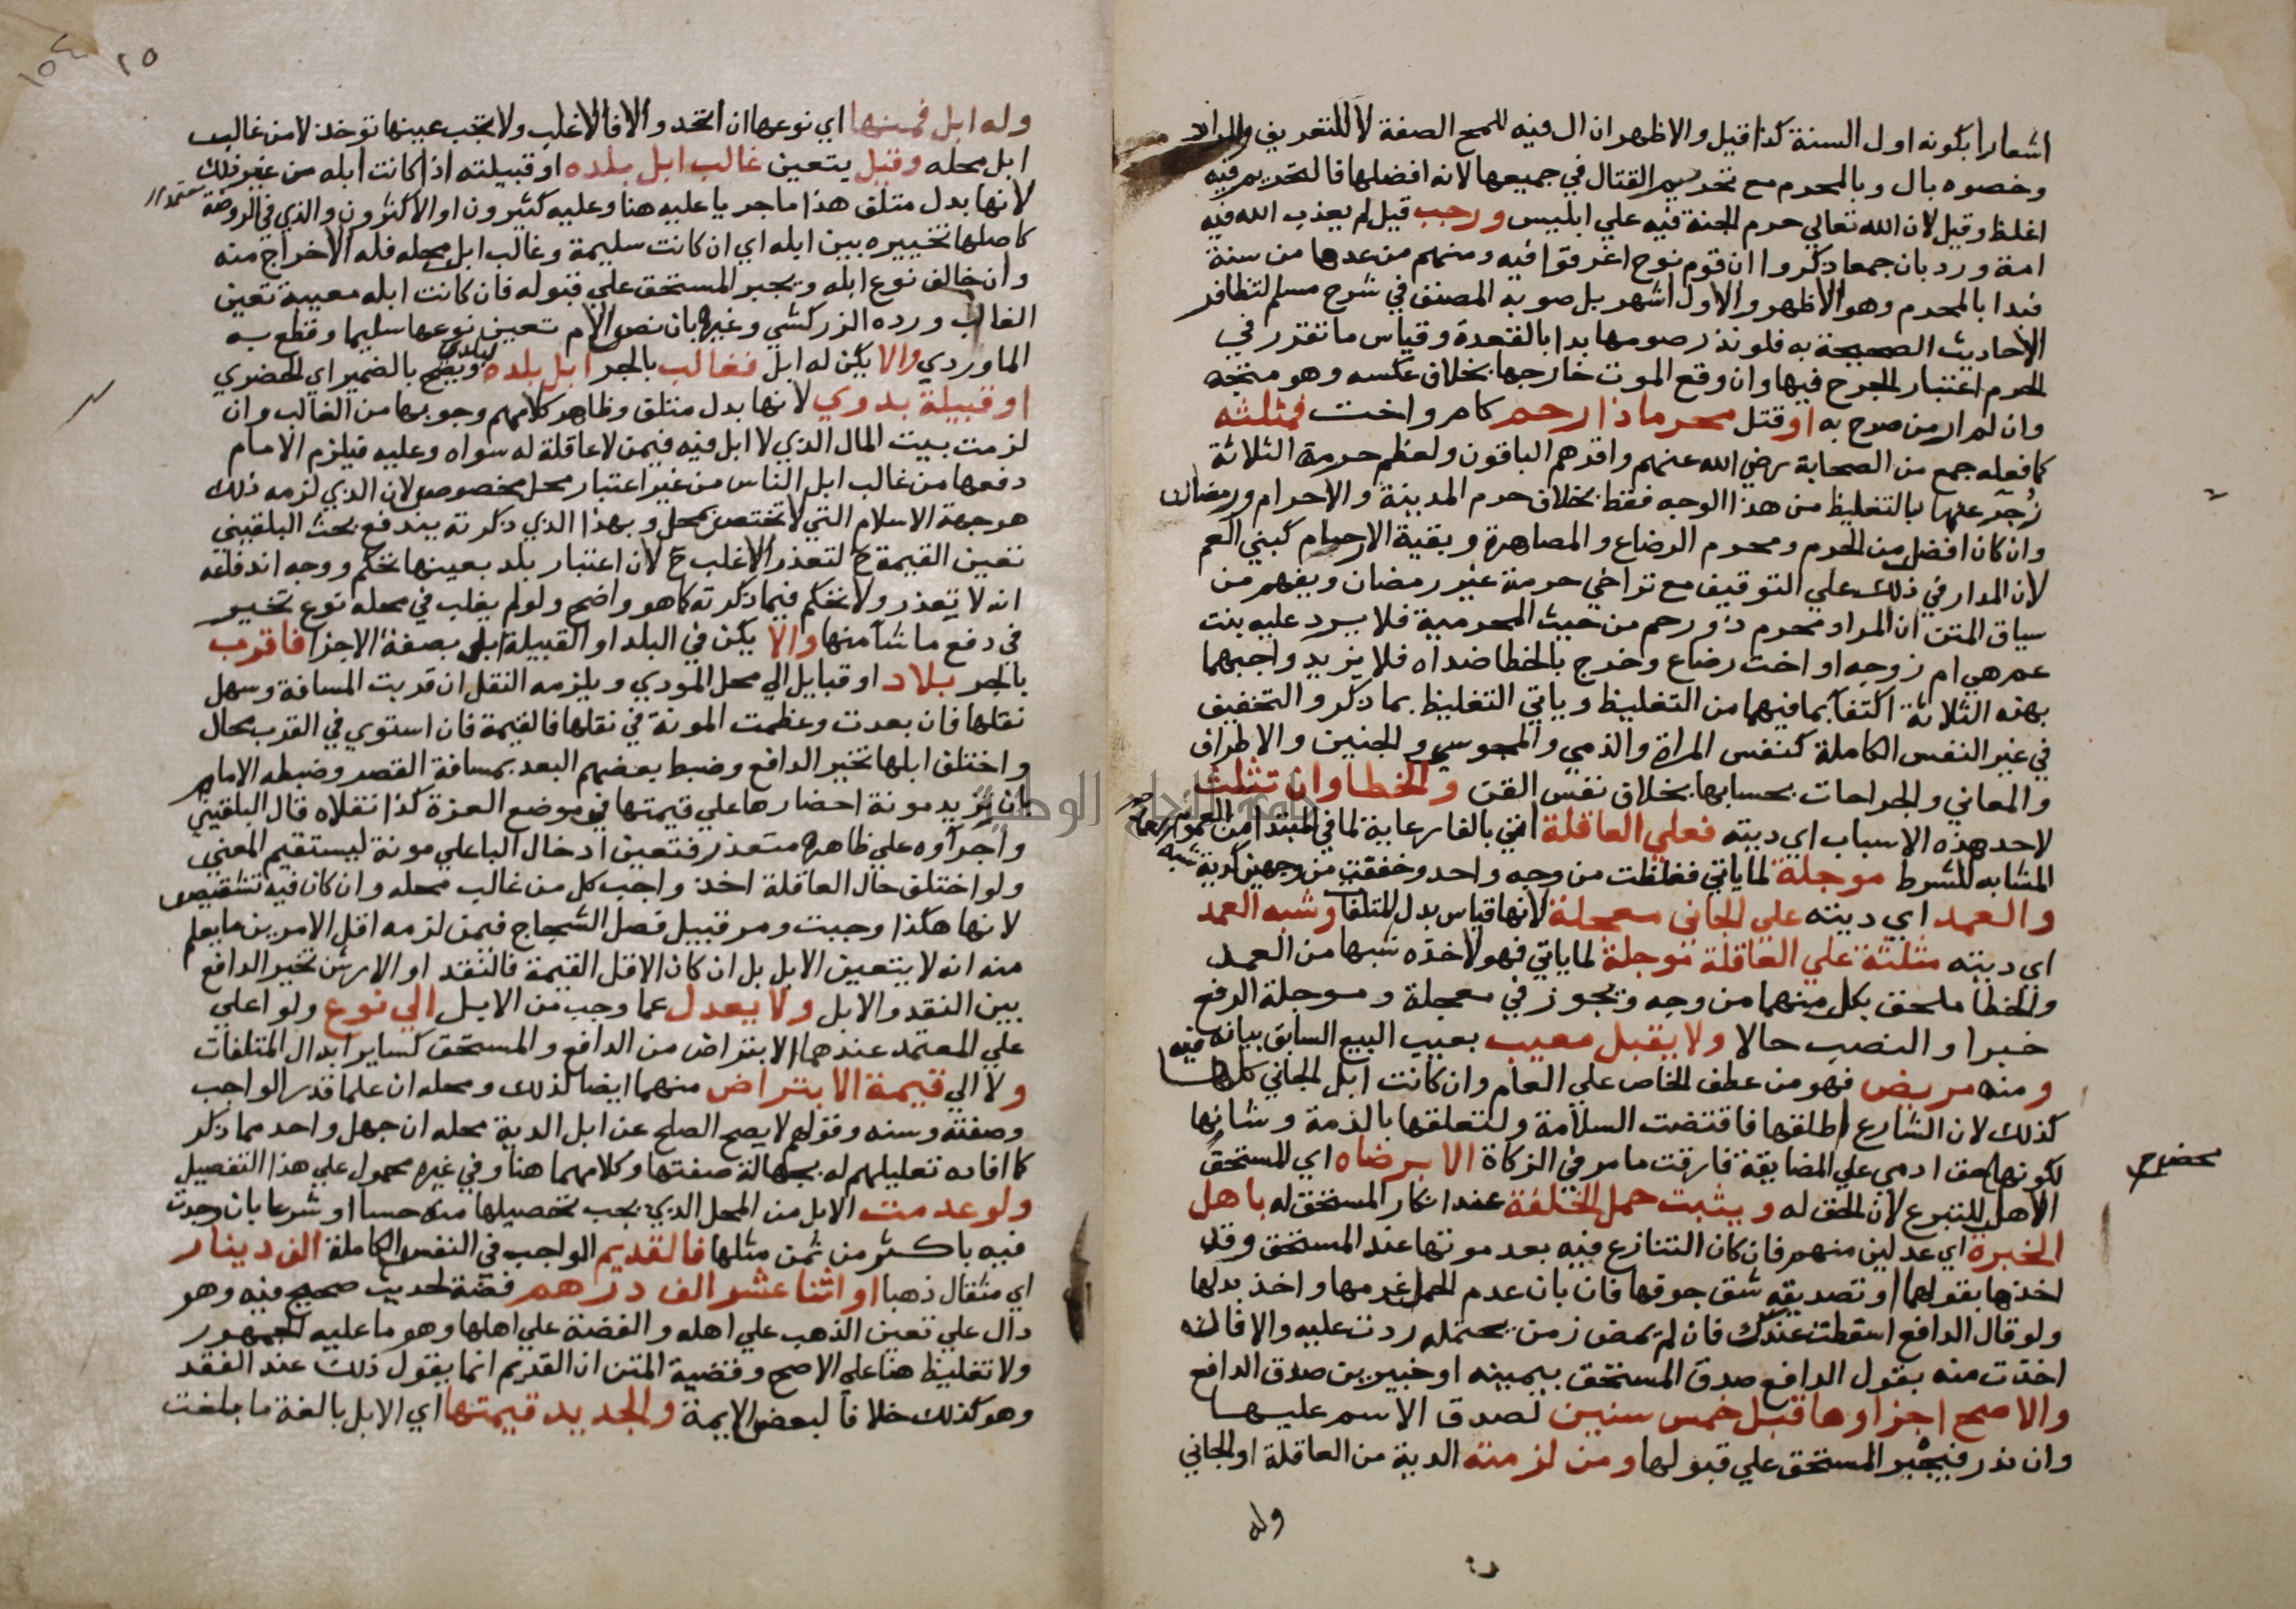 اشعارا بكونه اول السنة كذا قيل والاظهر ان ال فيه للمح الصفة لا للتعريف والمراد
وخصوه بال وبالمحرم مع تحريم القتال في جميعها لانه افضلها فالتحريم فيه
اغلظ وقيل لان الله تعالي حرم الجنة فيه علي ابليس ورجب قيل لم يعذب الله فيه
امة ورد بان جمعا ذكروا ان قوم نوح اغرقوا فيه ومنهم من عدها من سنة
فبدا بالمحرم وهو الاظهر والاول اشهر بل صوبه المصنف في شرح مسلم لتظافر
الاحاديث الصحيحة به فلو نذر صومها بدا بالقعدة وقياس ما تقرر في
الحرم اعتبار الجرح فيها وان وقع الموت خارجها بخلاف عكسه وهو متجه
وان لم ار من صرح به او قتل محرما ذا رحم كام واخت فمثلثه
كما فعله جمع من الصحابة رضي الله عنهم واقرهم الباقون ولعظم حرمة الثلاثة
زجر عنها بالتغليظ من هذا الوجه فقط بخلاف حرم المدينة والاحرام ورمضان
وان كان افضل من الحرم ومحرم الرضاع والمصاهرة وبقية الارحام كبني العم
لان المدار في ذلك علي التوقيف مع تراخي حرمة غير رمضان ويفهم من
سياق المتن ان المراد محرم ذو رحم من حيث المحرمية فلا يرد عليه بنت
عم هي ام زوجه او اخت رضاع وخرج بالخطا ضداه فلا يزيد واجبهما
بهذه الثلاثة اكتفا بما فيهما من التغليظ وياتي التغليظ بما ذكر والتخفيف
في غير النفس الكاملة كنفس المراة والذمي والمجوسي والجنين والاطراف
والمعاني والجراحات بحسابها بخلاف نفس القن والخطا وان تثلث
لاحد هذه الاسباب اي ديته فعلي العاقلة اتي بالفا رعاية لما في المبتدا من العموم
المشابه للشرط موجلة لما ياتي فغلظت من وجه واحد وخففت من وجهين كدية شبه
والعمد اي ديته علي الجاني معجلة لانها قياس بدل المتلفات وشبه العمد
اي ديته مثلثة علي العاقلة موجلة لما ياتي فهو لاخذه شبها من العمد
والخطا ملحق بكل منهما من وجه ويجوز في معجلة وموجلة الرفع
خبرا والنصب حالا ولا يقبل معيب بعيب البيع السابق بيانه فيه
ومنه مريض فهو من عطف الخاص علي العام وان كانت ابل الجاني كلها
كذلك لان الشارع اطلقها فاقتضت السلامة ولتعلقها بالذمة وشانها
لكونها حق ادمي علي المضايقة فارقت ما مر في الزكاة الا برضاه اي المستحق
الاهل للتبرع لان الحق له ويثبت حمل الخلفة عند انكار المستحق له باهل
الخبرة اي عدلين منهم فان كان التنازع فيه بعد موتها عند المستحق وقد
اخذها بقولهما او تصديقه شق جوفها فان بان عدم الحمل غرمها واخذ بدلها
ولو قال الدافع اسقطت عندك فان لم يمض زمن يحتمله ردت عليه والا فان
اخذت منه بقول الدافع صدق المستحق بيمينه او خبيرين صدق الدافع
والاصح اجزاوها قبل خمس سنين لصدق الاسم عليها
وان ندر فيجبر المستحق علي قبولها ومن لزمته الدية من العاقلة او الجاني
وله
وله ابل فمنها اي نوعها ان اتحد والا فالاغلب ولا تجب عينها توخذ لا من غالب
ابل محله وقيل يتعين غالب ابل بلده او قبيلته اذا كانت ابله من غير ذلك
لانها بدل متلف هذا ما جريا عليه هنا وعليه كثيرون او الاكثرون والذي في الروضة
كاصلها تخييره بين ابله اي ان كانت سليمة وغالب ابل محله فله الاخراج منه
وان خالف نوع ابله ويجبر المستحق علي قبوله فان كانت ابله معيبة تعين
الغالب ورده الزركشي وغيره بان نص الام تعين نوعها سليما وقطع به
الماوردي والا يكن له ابل فغالب بالجر ابل بلده ويصح بالضمير اي الحضري
او قبيلة بدوي لانها بدل متلف وظاهر كلامهم وجوبها من الغالب وان
لزمت بيت المال الذي لا ابل فيه فيمن لا عاقلة له سواه وعليه فيلزم الامام
دفعها من غالب ابل الناس من غير اعتبار محل مخصوص لان الذي لزمه ذلك
هو جهة الاسلام التي لا تختص بمحل وبهذا الذي ذكرته يندفع بحث البلقيني
تعين القيمة ح لتعذر الاغلب ح لان اعتبار بلد بعينها تحكم ووجه اندفاعه
انه لا تعذر ولا تحكم فيما ذكرته كما هو واضح ولو لم يغلب في محله نوع تخير
في دفع ما شا منها والا يكن في البلد او القبيلة ابل بصفة الاجزا فاقرب
بالجر بلاد او قبايل الي محل المودي ويلزمه النقل ان قربت المسافة وسهل
نقلها فان بعدت وعظمت المونة في نقلها فالقيمة فان استوي في القرب محال
واختلف ابلها تخير الدافع وضبط بعضهم البعد بمسافة القصر وضبطه الامام
بان تزيد مونة احضارها علي قيمتها في موضع العزة كذا نقلاه قال البلقيني
واجراوه علي ظاهره متعذر فتعين ادخال البا علي مونة ليستقيم المعني
ولو اختلف حال العاقلة اخذ واجب كل من غالب محله وان كان فيه تشقيص
لانها هكذا وجبت ومر قبيل فصل الشجاج فيمن لزمه اقل الامرين ما يعلم
منه انه لا يتعين الابل بل ان كان الاقل القيمة فالنقد او الارش تخير الدافع
بين النقد والابل ولا يعدل عما وجب من الابل الي نوع ولو اعلي
علي المعتمد عندهما الا بتراض من الدافع والمستحق كساير ابدال المتلفات
ولا الي قيمة الا بتراض منهما ايضا لذلك ومحله ان علما قدر الواجب
وصفته وسنه وقولهم لا يصح الصلح عن ابل الدية محله ان جهل واحد مما ذكر
كما افاده تعليلهم له بجهالة صفتها وكلامهما هنا وفي غيره محمول علي هذا التفصيل
ولو عدمت الابل من المحل الذي يجب تحصيلها منه حسا او شرعا بان وجدت
فيه باكثر من ثمن مثلها فالقديم الواجب في النفس الكاملة الف دينار
اي مثقال ذهبا او اثنا عشر الف درهم فضة لحديث صحيح فيه وهو
دال علي تعين الذهب علي اهله والفضة علي اهلها وهو ما عليه الجمهور
ولا تغليظ هنا علي الاصح وقضية المتن ان القديم انما يقول ذلك عند الفقد
وهو كذلك خلافا لبعض الايمة والجديد قيمتها اي الابل بالغة ما بلغت
٢٥
١٥٤
جامعة النجاح الوطنية